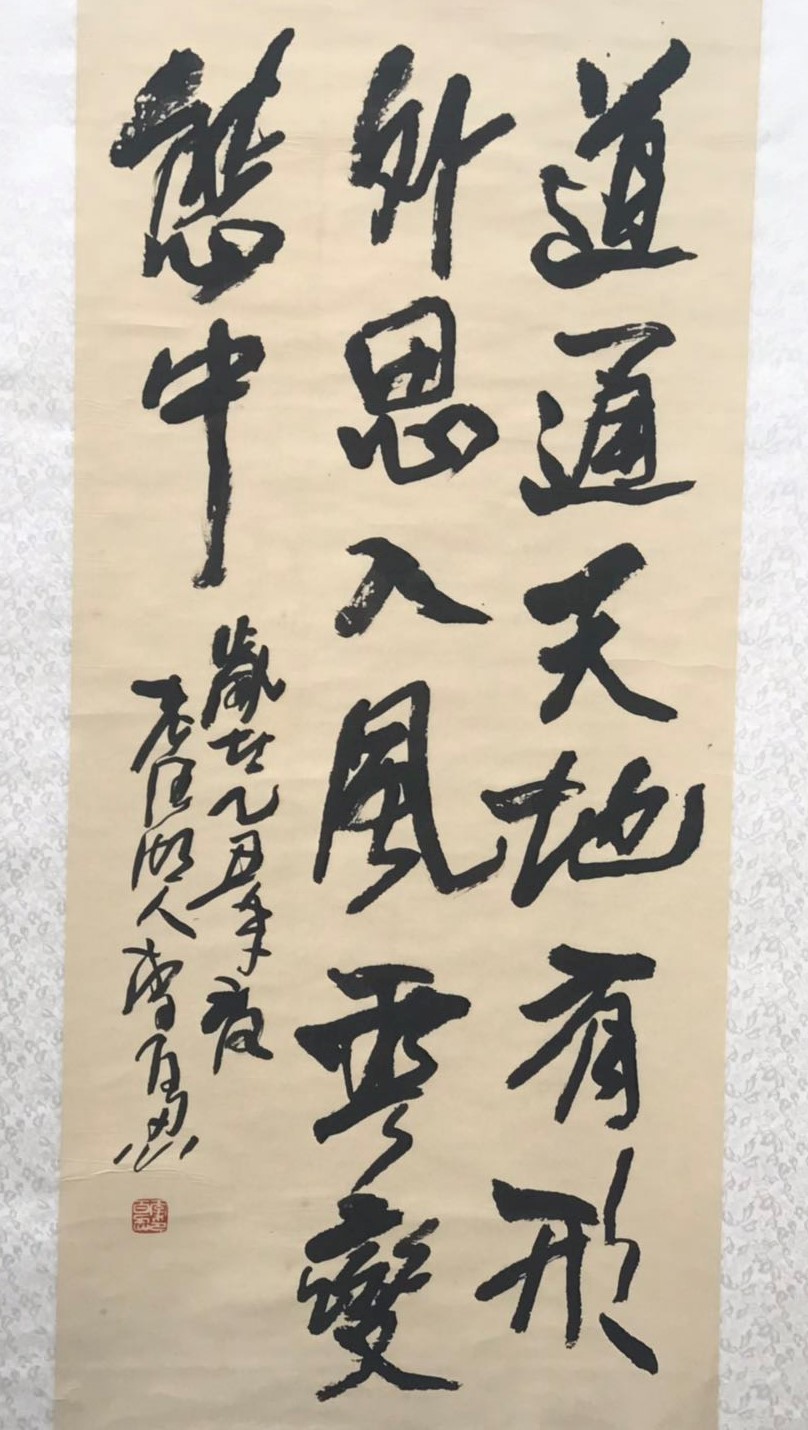 道通天地有形
外思入風雲變
態中
歲在乙丑年夏
人李百忍